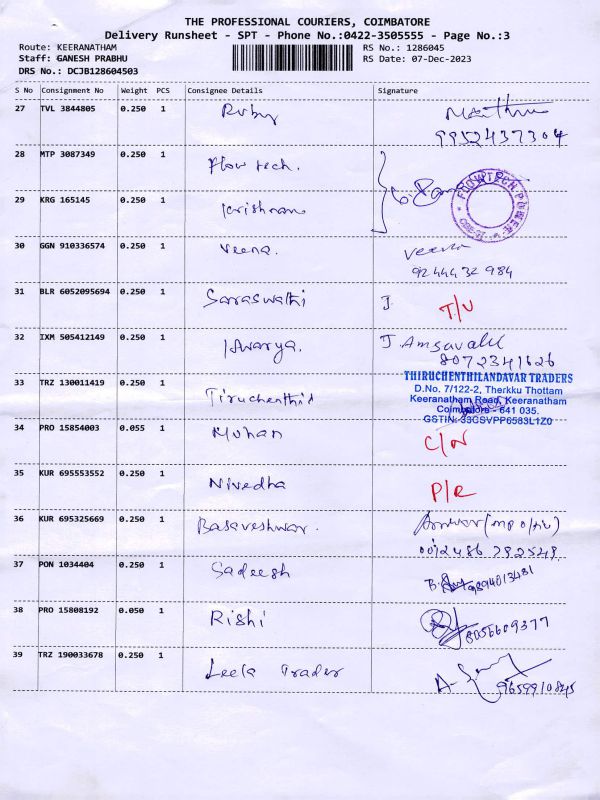 THE PROFESSIONAL COURIERS, COIMBATORE
Delivery Runsheet - SPT - Phone No.:0422-3505555 - Page No.:3
Route: KEERANATHAM
RS No.: 1286045
Staff: GANESH PRABHU
RS Date: 07-Dec-2023
DRS No.: DCJB128604503
S No Consignment No Weight PCS Consignee Details Signature
27 TVL 3844805 0.250 1 Ruby
9952437304
28 MTP 3087349 0.250 1 Flow tech.
FLOWTECH POWER
29 KRG 165145 0.250 1 Krishnan
30 GGN 910336574 0.250 1 Veena. Veena
9244432984
31 BLR 6052095694 0.250 1 Saraswathi J. T/U
32 IXM 505412149 0.250 1 J. Amsavalli
8072341626
33 TRZ 130011419 0.250 1 Tiruchenthid
THIRUCHENTHILANDAVAR TRADERS
D.No. 7/122-2, Therkku Thottam
Keeranatham Road, Keeranatham
Coimbatore - 641 035.
GSTIN: 33CSVPP6583L1Z0
34 PRO 15854003 0.055 1 Mohan C/N
35 KUR 695553552 0.250 1 Nivedha P/R
36 KUR 695325669 0.250 1 Basaveshwar.
37 PON 1034404 0.250 1 Sadeesh 9894013481
38 PRO 15808192 0.050 1 Rishi 8056609377
39 TRZ 190033678 0.250 1 Leela Trader